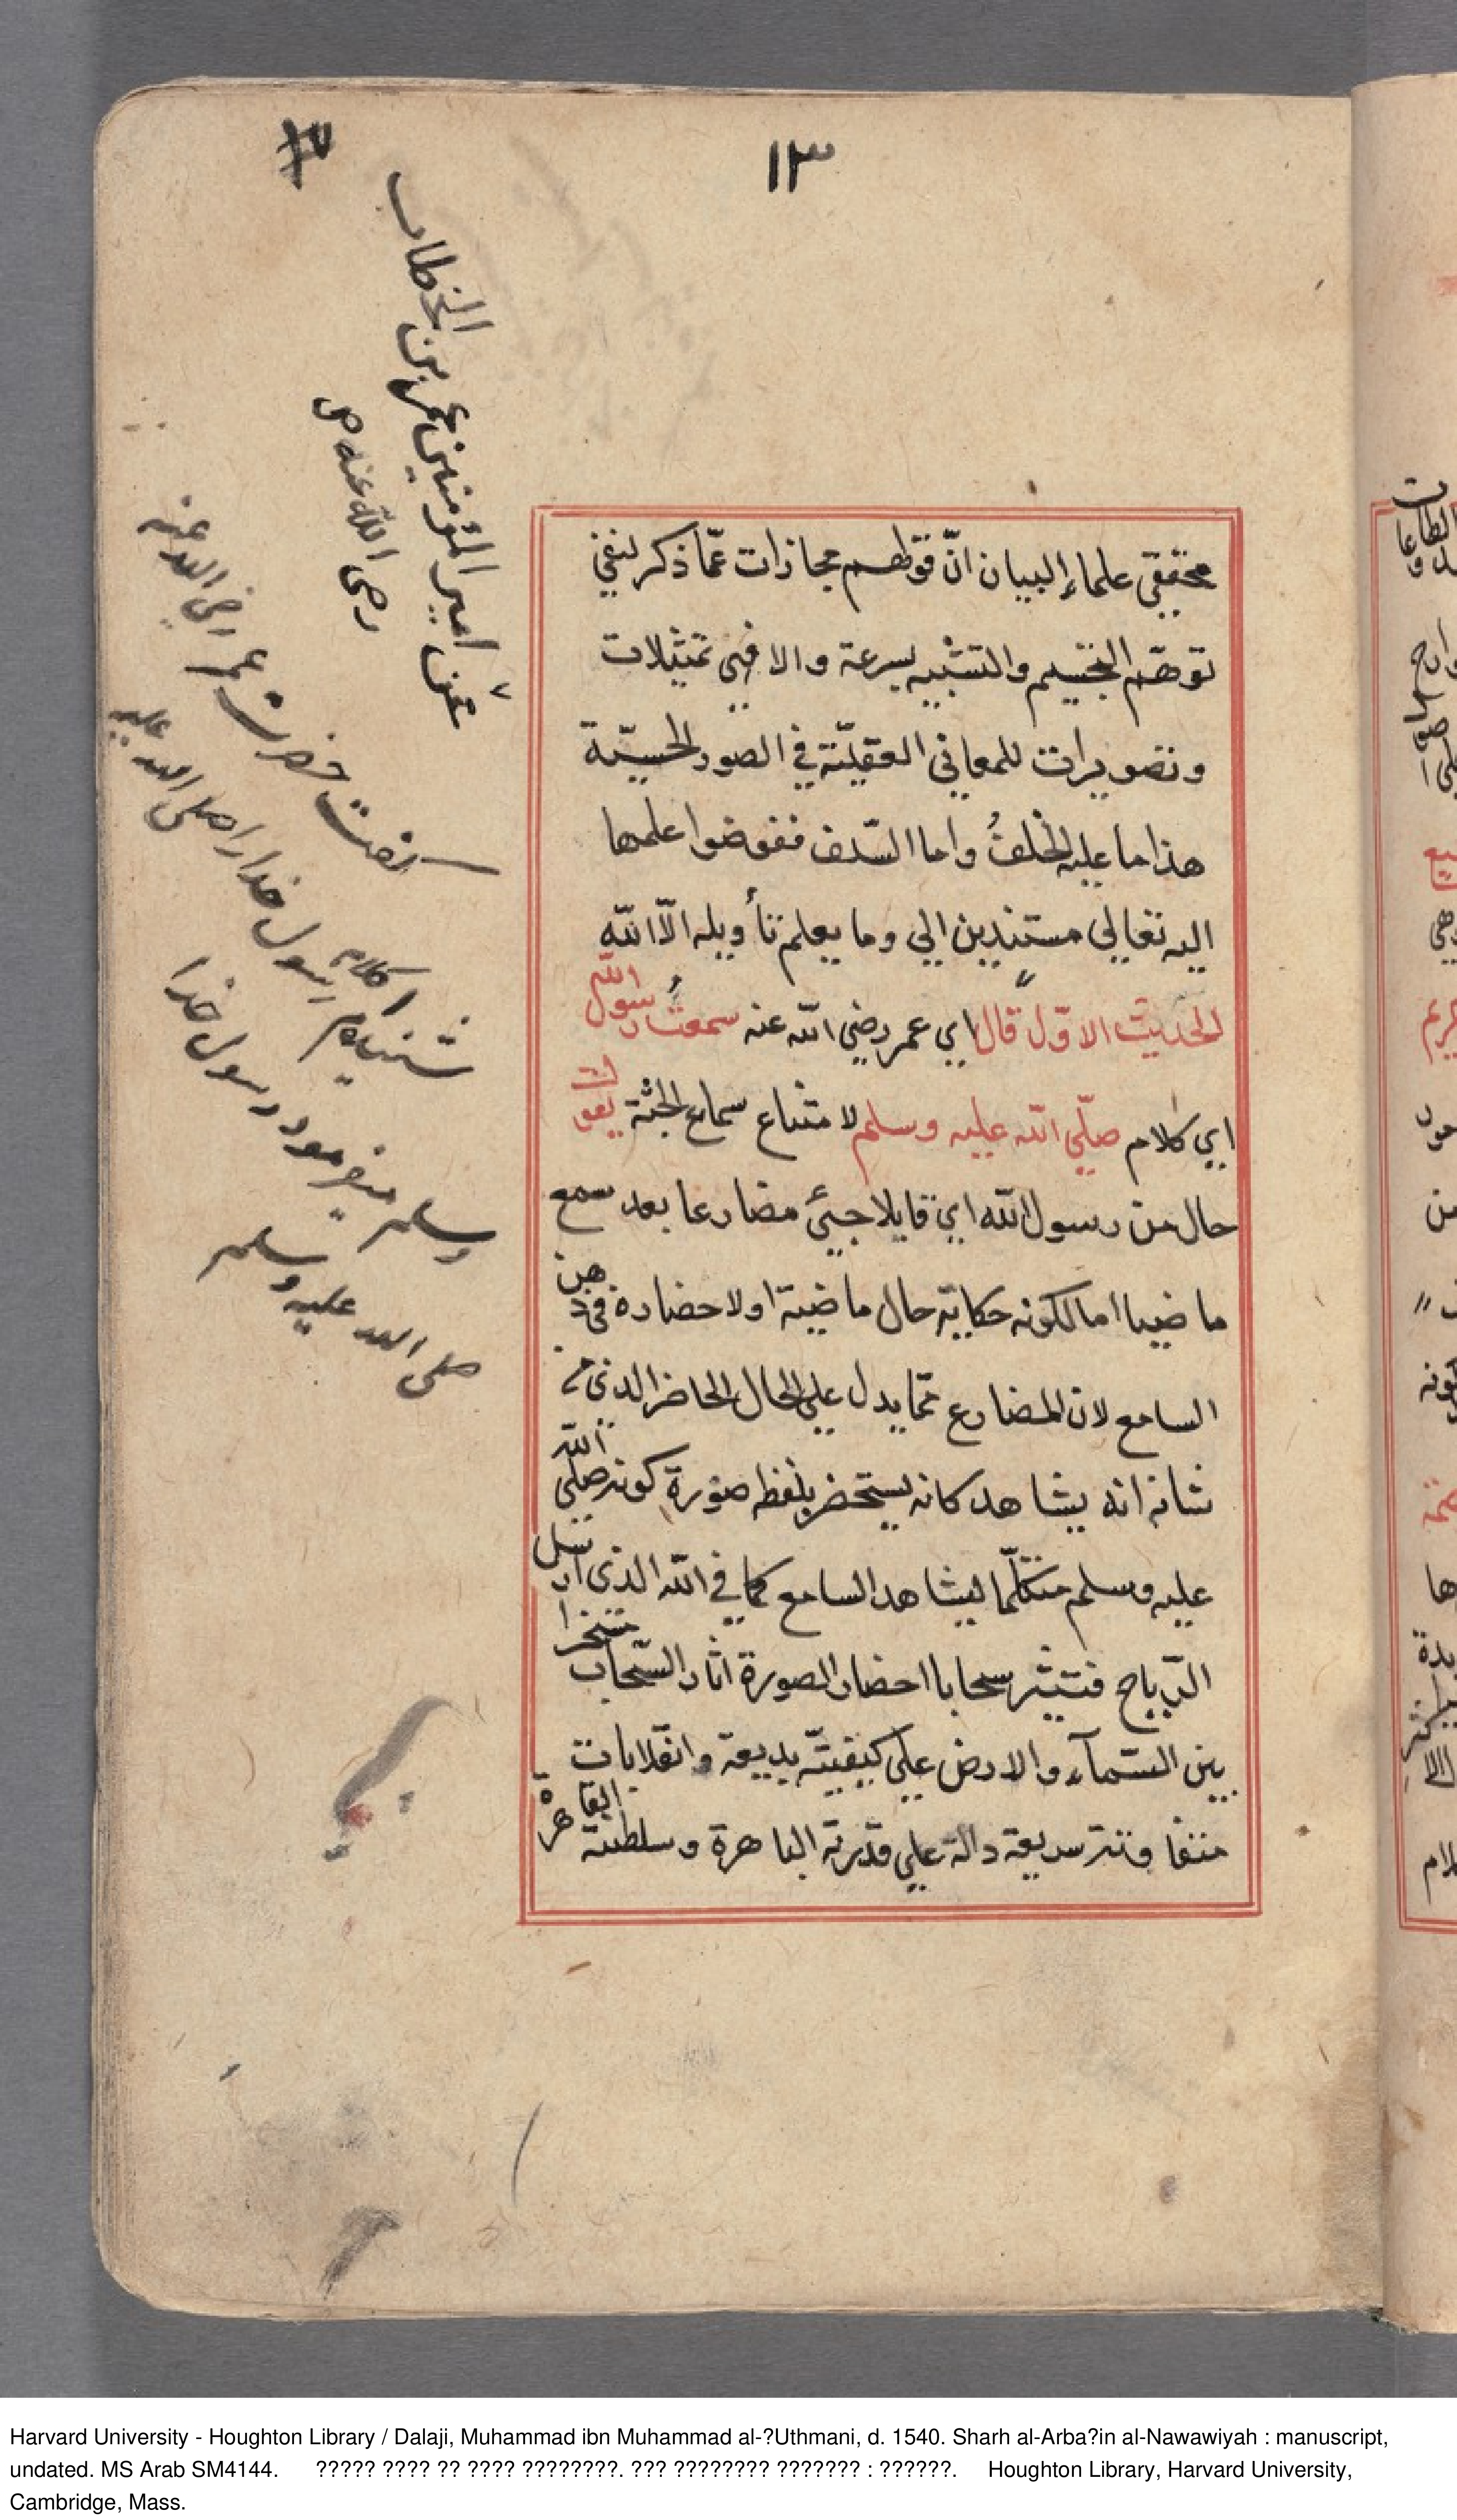 ١٣
محققي علماء البيان انّ قولهم مجازات عمّا ذكر لنفي
توهّم التجسيم والتشبيه بسرعة والا فهي تمثيلات
وتصويرات للمعاني العقليّة في الصور الحسيّة
هذا ما عليه الخلفُ واما السّلف ففوضوا علمها
اليه تعالي مستندين الي وما يعلم تأويله الاّ الله
الحديث الاوّل قال اي عمر رضي الله عنه سمعتُ رسول الله
اي كلام صلّي الله عليه وسلم لامتناع سماع الجثة يقول
حال من رسول الله اي قايلا جيئ مضارعا بعد سمع
ماضيا اما لكونه حكاية حال ماضية او لاحضاره في ذهن
السامع لان المضارع ممّا يدل علي الحال الحاضر الذي من
شانه انه يشاهد كانه يستحضر بلفظه صورة كونه صلّي الله
عليه وسلم متكلّما ليشاهد السامع كما في الله الذي ارسل
الرّياح فتثير سحابا احضار الصورة اثار السّحاب مسخرا
بين السّمآء والارض علي كيفيّة بديعة وانقلابات
متفاوتة سريعة دالة علي قدرته الباهرة وسلطنته القاهرة
عن امير المؤمنين عمر بن الخطاب
رضى الله عنه ص
كفت حضرت عمر رضى الله عنه
شنيدم كلام رسول خدا را صلى الله عليه
وسلم ميفرمود رسول خدا
صلى الله عليه وسلم
Harvard University - Houghton Library / Dalaji, Muhammad ibn Muhammad al-?Uthmani, d. 1540. Sharh al-Arba?in al-Nawawiyah : manuscript,
undated. MS Arab SM4144. ????? ???? ?? ???? ????????. ??? ???????? ??????? : ??????. Houghton Library, Harvard University,
Cambridge, Mass.